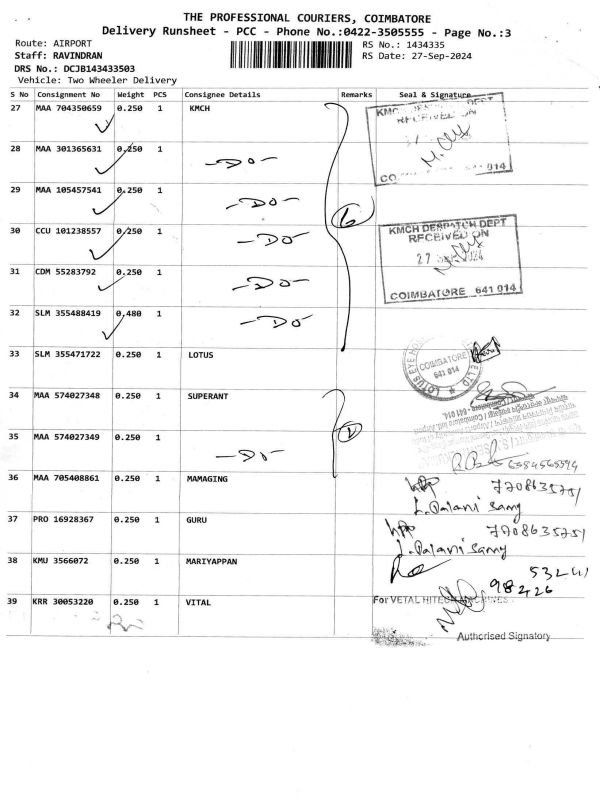 THE PROFESSIONAL COURIERS, COIMBATORE
Delivery Runsheet - PCC - Phone No.:0422-3505555 - Page No.:3
Route: AIRPORT RS No.: 1434335
Staff: RAVINDRAN RS Date: 27-Sep-2024
DRS No.: DCJB143433503
Vehicle: Two Wheeler Delivery
S No Consignment No Weight PCS Consignee Details Remarks Seal & Signature
27 MAA 704350659 0.250 1 KMCH
28 MAA 301365631 0.250 1 -DO-
29 MAA 105457541 0.250 1 -DO-
30 CCU 101238557 0.250 1 -DO-
31 CDM 55283792 0.250 1 -DO-
32 SLM 355488419 0.480 1 -DO-
KMCH DESPATCH DEPT
RECEIVED ON
641 014
KMCH DESPATCH DEPT
RECEIVED ON
27 2024
COIMBATORE 641 014
33 SLM 355471722 0.250 1 LOTUS
LOTUS EYE
COIMBATORE
641 014
34 MAA 574027348 0.250 1 SUPERANT
35 MAA 574027349 0.250 1 -DO-
36 MAA 705408861 0.250 1 MAMAGING
7708635751
L. Palani Samy
37 PRO 16928367 0.250 1 GURU
7708635751
L. Palani Samy
38 KMU 3566072 0.250 1 MARIYAPPAN
98426
39 KRR 30053220 0.250 1 VITAL
For VETAL HITECH MACHINES
Authorised Signatory